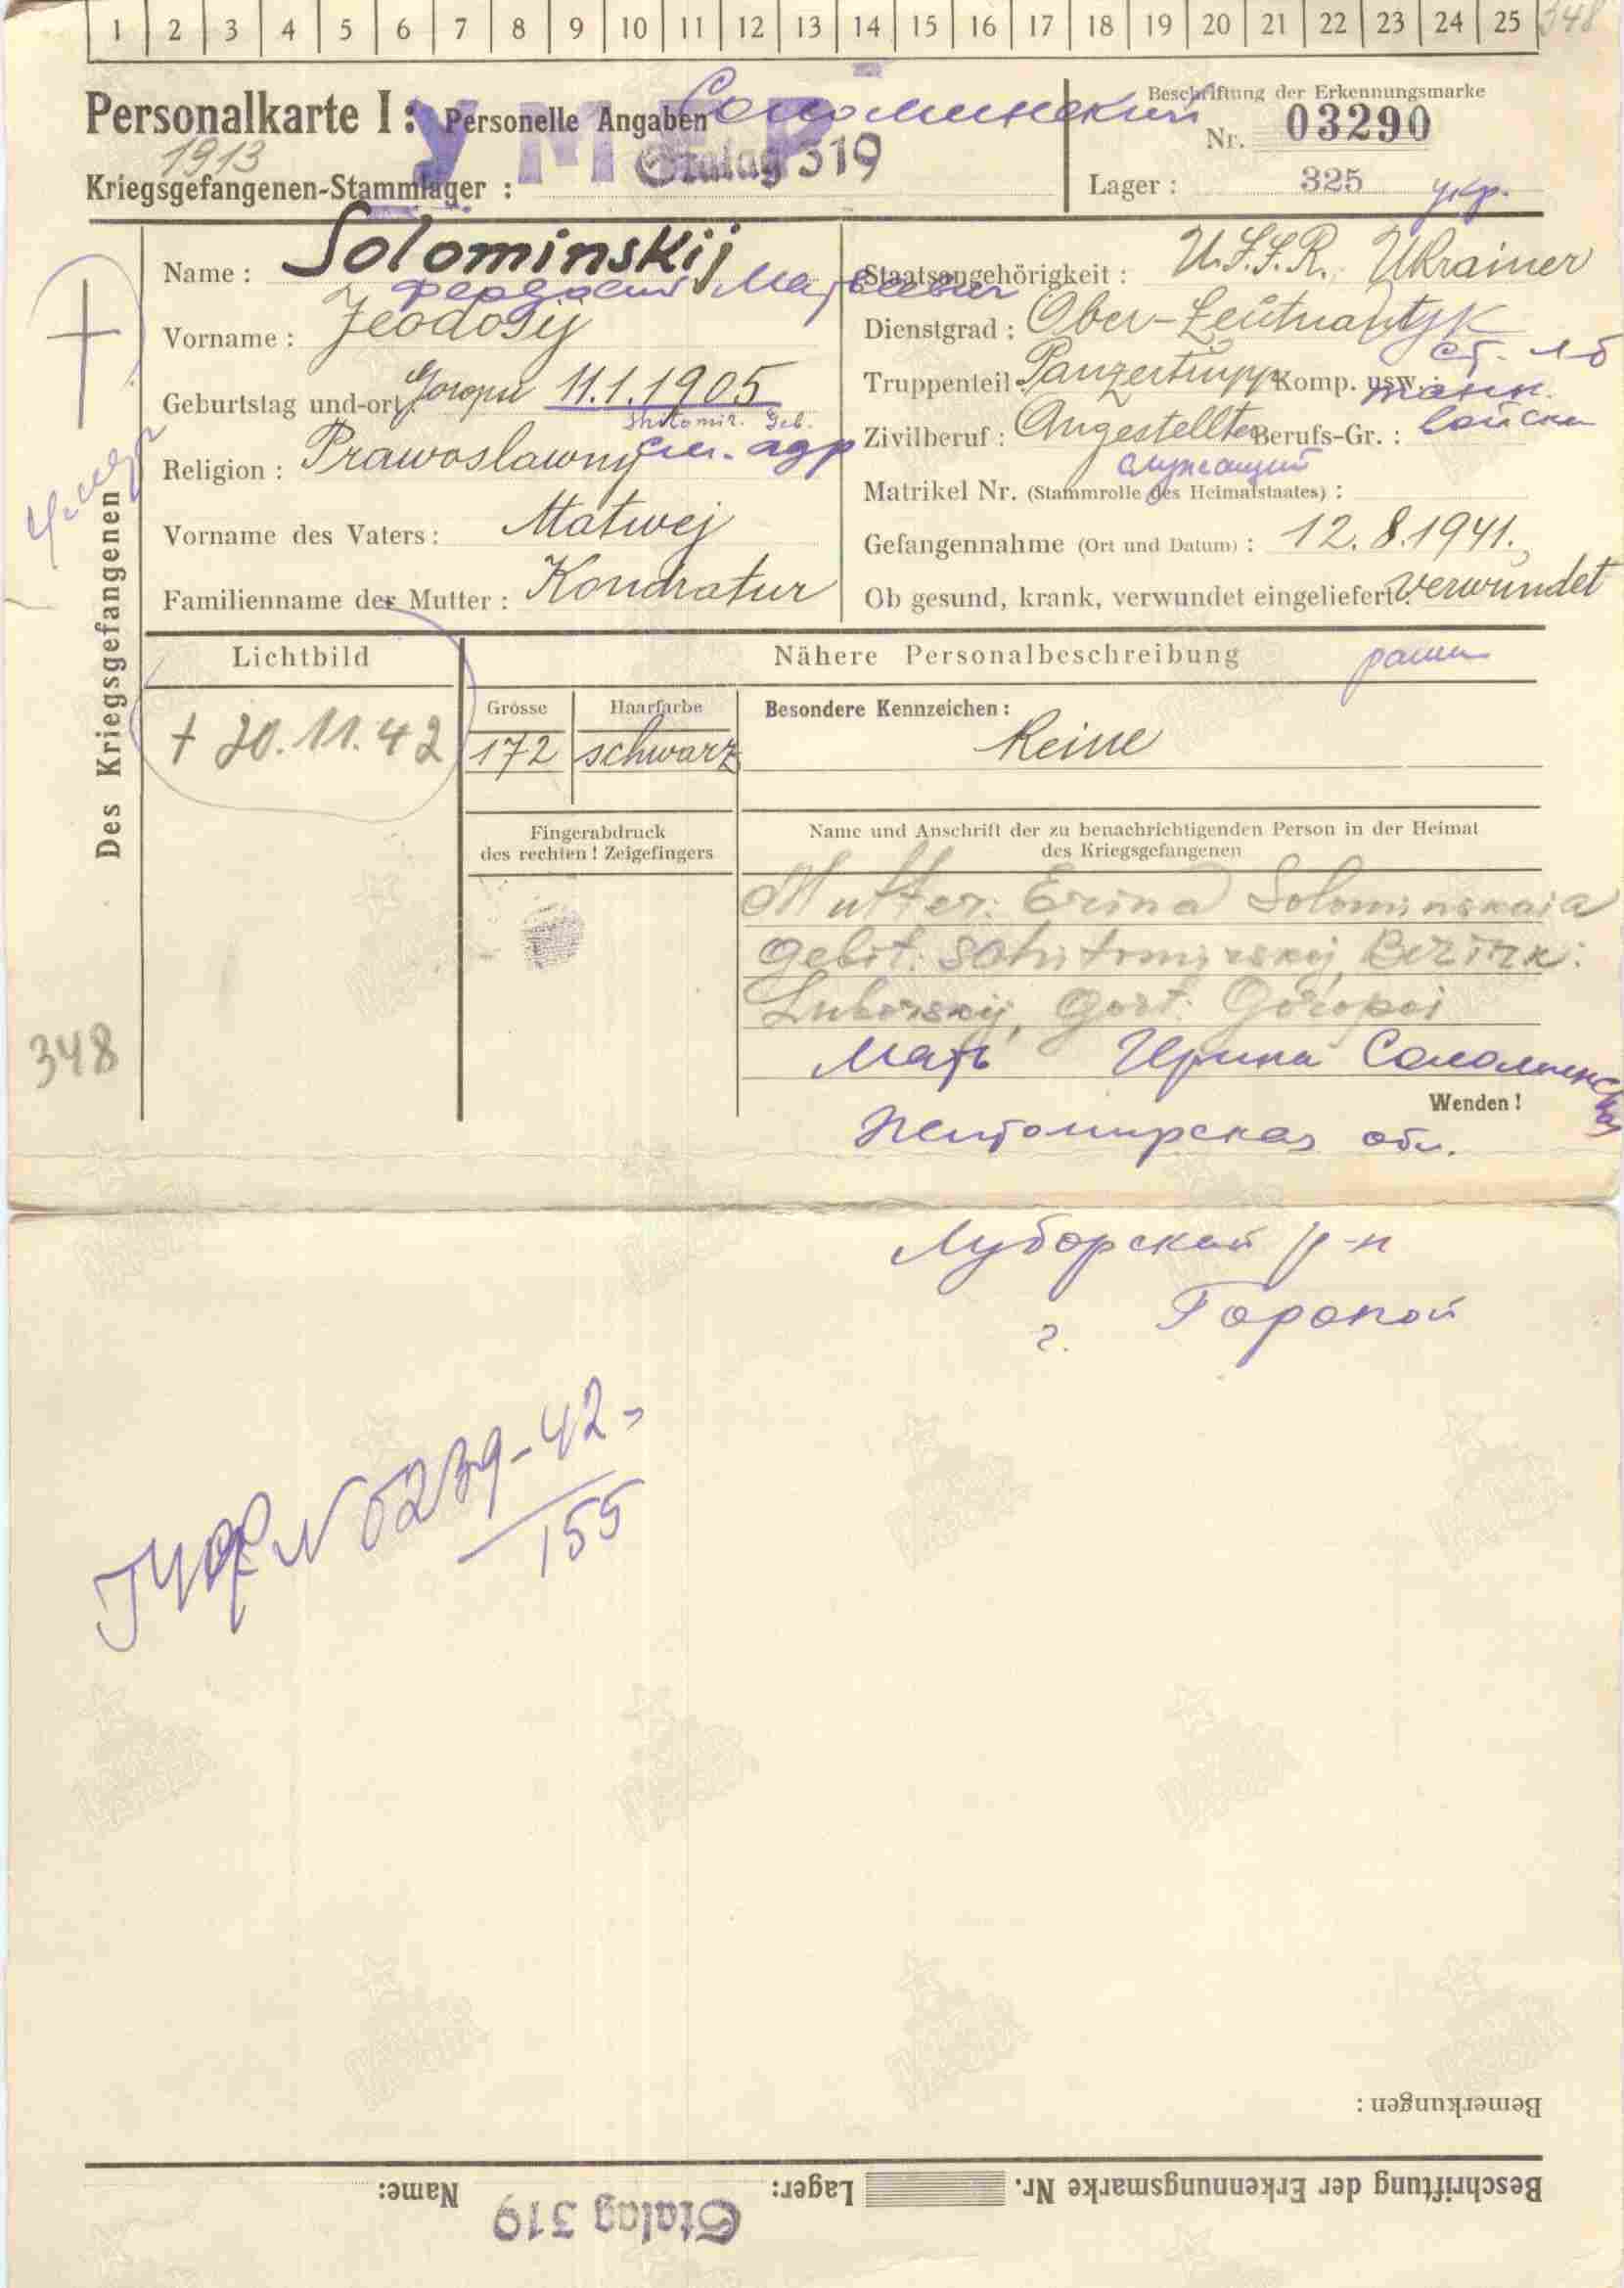 1 2 3 4 5 6 7 8 9 10 11 12 13 14 15 16 17 18 19 20 21 22 23 24 25 348
Personalkarte I: Personelle Angaben Соломинский
УМЕР
Beschriftung der Erkennungsmarke
Nr. 03290
1913
Kriegsgefangenen-Stammlager : Stalag 319
Lager : 325 укр.
Des Kriegsgefangenen
умер
Name : Solominskij
Феодосий Матвеевич
Vorname : Feodosij
Geburtstag und -ort: Goropii 11.1.1905
Shitomir. Geb.
Religion : Prawoslawnij см. адр
Vorname des Vaters : Matwej
Familienname der Mutter : Kondratur
Staatsangehörigkeit : U.S.S.R. Ukrainer
Dienstgrad : Ober-Leutnant
ст. л-т
Truppenteil Panzertrupp Komp. usw. : танк.
войска
Zivilberuf : Angestellter Berufs-Gr. :
служащий
Matrikel Nr. (Stammrolle des Heimatstaates) :
Gefangennahme (Ort und Datum) : 12.8.1941.
Ob gesund, krank, verwundet eingeliefert: verwundet
ранен
Lichtbild
+ 20.11.42
Nähere Personalbeschreibung
Grösse
172
Haarfarbe
schwarz
Besondere Kennzeichen :
Keine
Fingerabdruck
des rechten ! Zeigefingers
Name und Anschrift der zu benachrichtigenden Person in der Heimat
des Kriegsgefangenen
Mutter: Erina Solominskaia
Gebit: Schitomirskij, Bezirk:
Luborskij, Gort: Goropoi
Мать Ирина Соломинская
Wenden !
Житомирская обл.
348
Луборский р-н
г. Горопой
N 5239-42
155
Bemerkungen :
Beschriftung der Erkennungsmarke Nr. Lager: Name:
Stalag 319